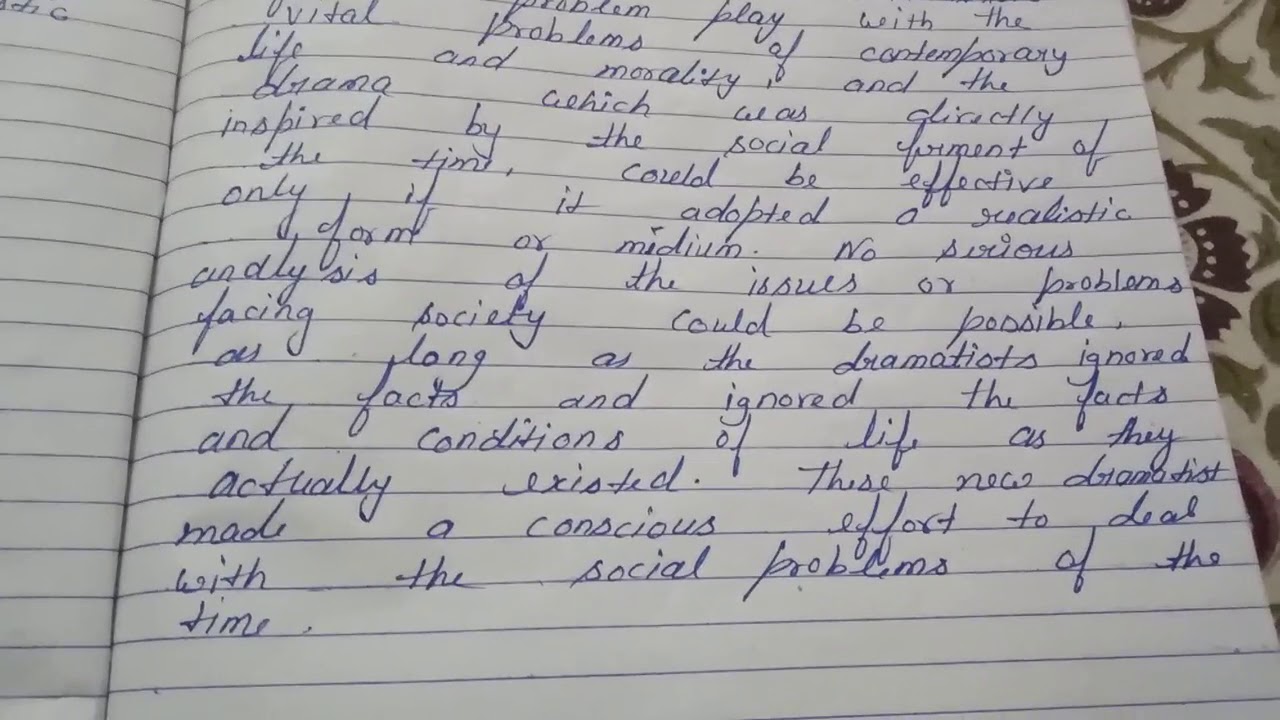 problem play with the
vital problems of contemporary
life and morality, and the
drama which was directly
inspired by the social ferment of
the time, could be effective
only if it adopted a realistic
form or midium. No serious
andlysis of the issues or problems
facing society could be possible,
as long as the dramatists ignored
the facts and ignored the facts
and conditions of life as they
actually existed. These new dramatist
made a conscious effort to deal
with the social problems of the
time.